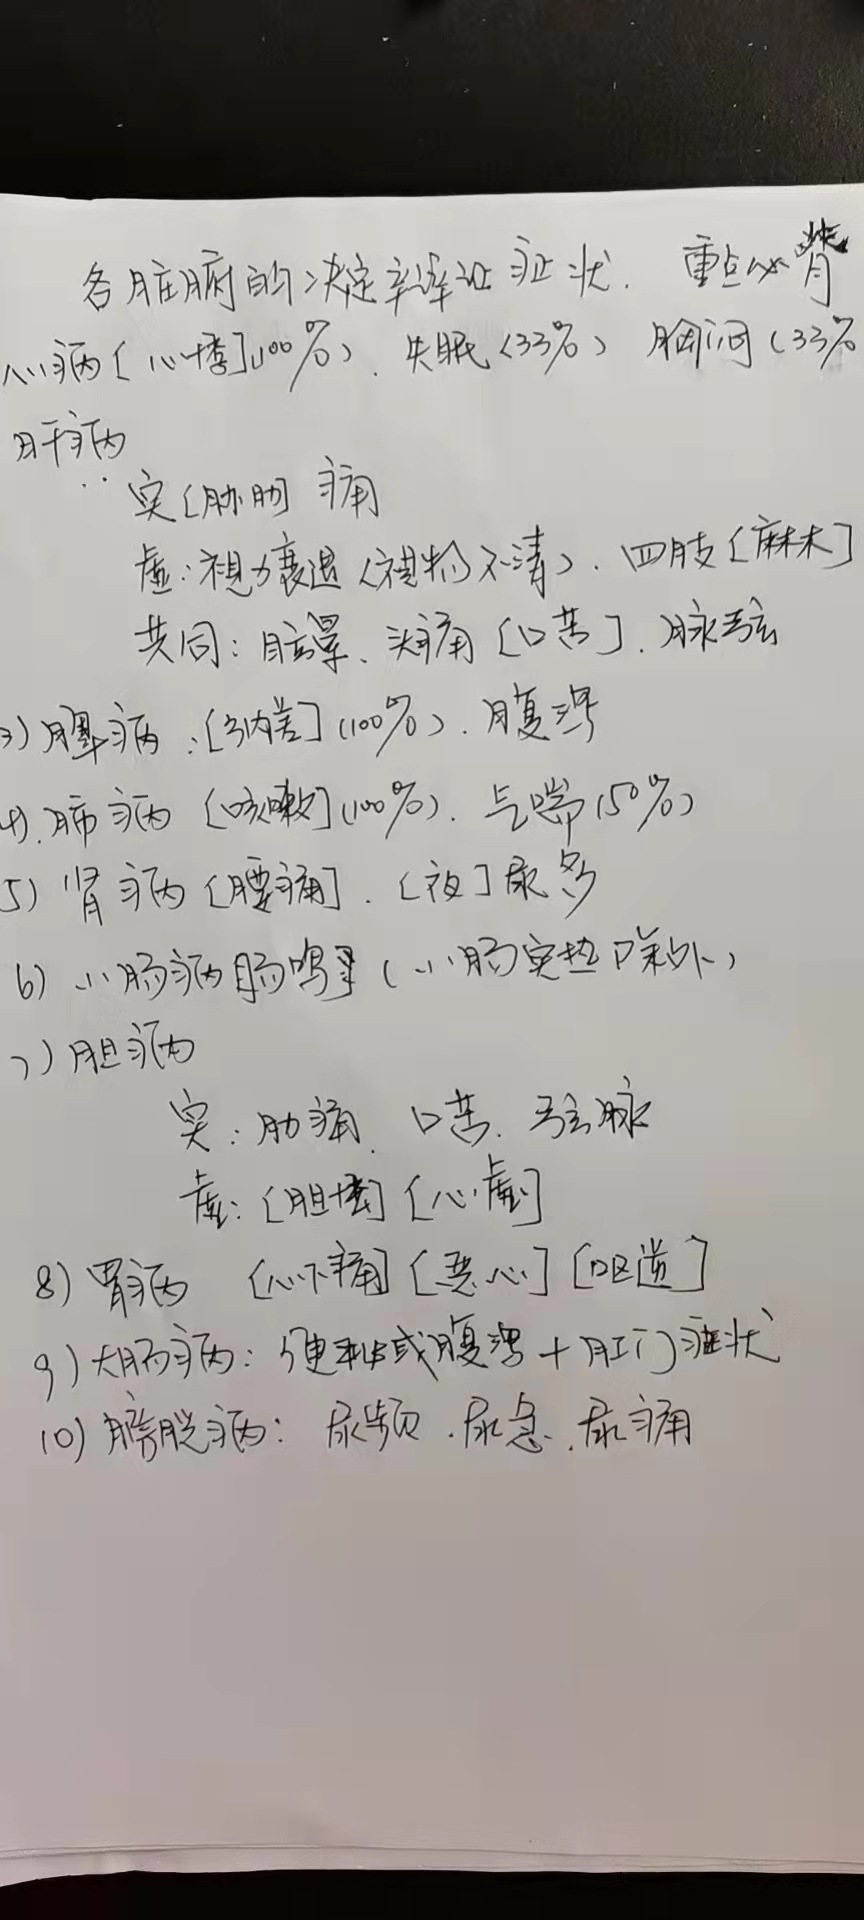 各脏腑的决定辛辨证症状. 重点必背
心病[心悸](100%)、失眠(33%) 胸闷(33%
肝病
实[胁肋]痛
虚:视力衰退(视物不清)、四肢[麻木]
共同:眩晕、头痛[口苕]、脉弦
3)脾病:[纳差](100%)、腹泻
4)、肺病[咳嗽](100%)、气喘(50%)
5)肾病[腰痛]、[夜]尿多
6)小肠病肠鸣(小肠实热除外)
7)胆病
实:肋痛、口苦、弦脉
虚:[胆怯][心虚]
8)胃病 [心下痛][恶心][呕逆]
9)大肠病:便秘或腹泻+肛门症状
10)膀胱病:尿频、尿急、尿痛